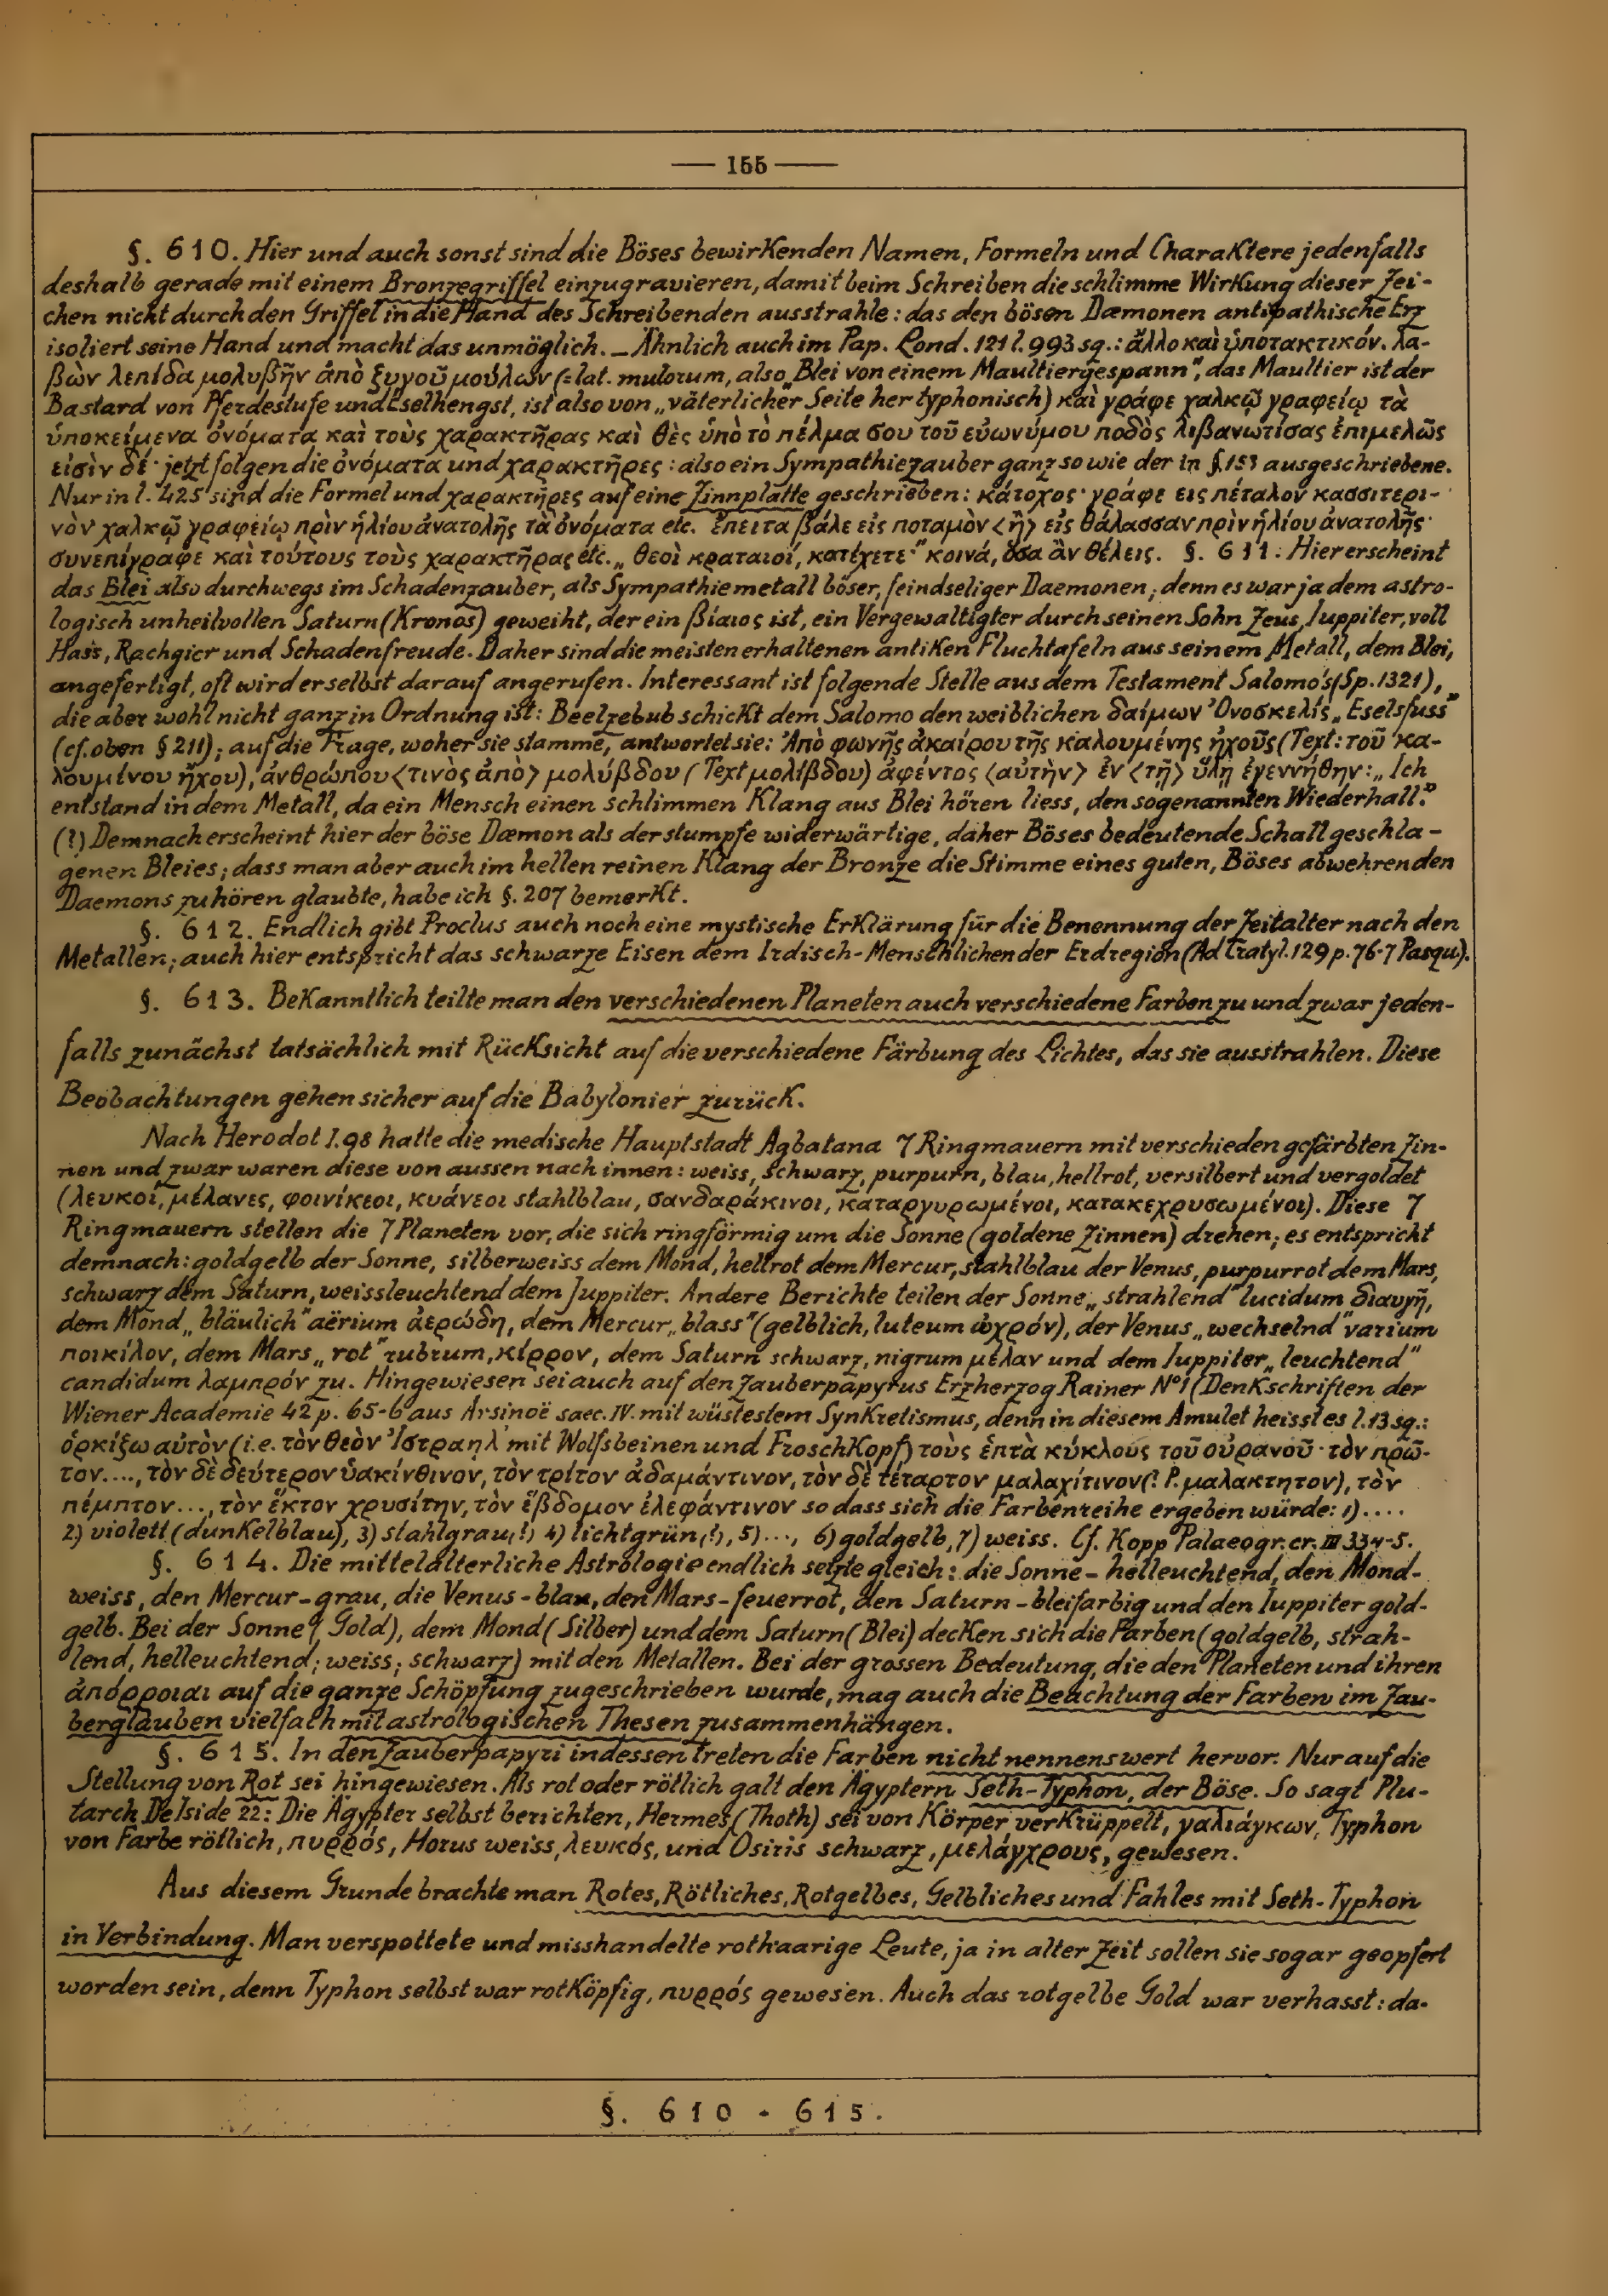 — 155 —
§. 610. Hier und auch sonst sind die Böses bewirkenden Namen, Formeln und Charaktere jedenfalls
deshalb gerade mit einem Bronzegriffel einzugravieren, damit beim Schreiben die schlimme Wirkung dieser Zei-
chen nicht durch den Griffel in die Hand des Schreibenden ausstrahle: das den bösen Dæmonen antipathische Erz
isoliert seine Hand und macht das unmöglich. _ Ähnlich auch im Pap. Lond. 121 l. 993 sq.: ἄλλο καὶ ὑποτακτικόν. λα-
βὼν λεπίδα μολυβῆν ἀπὸ ζυγοῦ μούλων (= lat. mulorum, also „Blei von einem Maultiergespann", das Maultier ist der
Bastard von Pferdestufe und Eselhengst, ist also von „väterlicher" Seite her typhonisch) καὶ γράφε χαλκῷ γραφείῳ τὰ
ὑποκείμενα ὀνόματα καὶ τοὺς χαρακτῆρας καὶ θὲς ὑπὸ τὸ πέλμα σου τοῦ εὐωνύμου ποδὸς λιβανωτίσας ἐπιμελῶς
εἰσὶν δέ· jetzt folgen die ὀνόματα und χαρακτῆρες: also ein Sympathiezauber ganz so wie der in §. 153 ausgeschriebene.
Nur in l. 425 sind die Formel und χαρακτῆρες auf eine Zinnplatte geschrieben: κάτοχος· γράφε εις πέταλον κασσιτερι-
νὸν χαλκῷ γραφείῳ πρὶν ἡλίου ἀνατολῆς τὰ ὀνόματα etc. ἔπειτα βάλε εἰς ποταμὸν <ἢ> εἰς θάλασσαν πρὶν ἡλίου ἀνατολῆς·
συνεπίγραφε καὶ τούτους τοὺς χαρακτῆρας etc. „θεοὶ κραταιοί, κατέχετε·" κοινά, ὅσα ἂν θέλεις. §. 611. Hier erscheint
das Blei also durchwegs im Schadenzauber, als Sympathiemetall böser, feindseliger Daemonen; denn es war ja dem astro-
logisch unheilvollen Saturn (Kronos) geweiht, der ein βίαιος ist, ein Vergewaltigter durch seinen Sohn Zeus, Iuppiter, voll
Hass, Rachgier und Schadenfreude. Daher sind die meisten erhaltenen antiken Fluchtafeln aus seinem Metall, dem Blei,
angefertigt, oft wird er selbst darauf angerufen. Interessant ist folgende Stelle aus dem Testament Salomo's (Sp. 1321),
die aber wohl nicht ganz in Ordnung ist: Beelzebub schickt dem Salomo den weiblichen δαίμων Ὀνοσκελίς „Eselsfuss"
(cf. oben § 211); auf die Frage, woher sie stamme, antwortet sie: Ἀπὸ φωνῆς ἀκαίρου τῆς καλουμένης ἠχοῦς (Text: τοῦ κα-
λουμένου ἤχου), ἀνθρώπου <τινὸς ἀπὸ> μολύβδου (Text μολίβδου) ἀφέντος <αὐτὴν> ἐν <τῇ> ὕλῃ ἐγεννήθην: „Ich
entstand in dem Metall, da ein Mensch einen schlimmen Klang aus Blei hören liess, den sogenannten Wiederhall."
(?) Demnach erscheint hier der böse Dæmon als der stumpfe widerwärtige, daher Böses bedeutende Schall geschla-
genen Bleies; dass man aber auch im hellen reinen Klang der Bronze die Stimme eines guten, Böses abwehrenden
Daemons zu hören glaubte, habe ich §. 207 bemerkt.
§. 612. Endlich gibt Proclus auch noch eine mystische Erklärung für die Benennung der Zeitalter nach den
Metallen; auch hier entspricht das schwarze Eisen dem Irdisch-Menschlichen der Erdregion (Ad Cratyl. 129 p. 76-7 Pasqu.).
§. 613. Bekanntlich teilte man den verschiedenen Planeten auch verschiedene Farben zu und zwar jeden-
falls zunächst tatsächlich mit Rücksicht auf die verschiedene Färbung des Lichtes, das sie ausstrahlen. Diese
Beobachtungen gehen sicher auf die Babylonier zurück.
Nach Herodot I. 98 hatte die medische Hauptstadt Agbatana 7 Ringmauern mit verschieden gefärbten Zin-
nen und zwar waren diese von aussen nach innen: weiss, schwarz, purpurn, blau, hellrot, versilbert und vergoldet
(λευκοί, μέλανες, φοινίκεοι, κυάνεοι stahlblau, σανδαράκινοι, καταργυρωμένοι, κατακεχρυσωμένοι). Diese 7
Ringmauern stellen die 7 Planeten vor, die sich ringförmig um die Sonne (goldene Zinnen) drehen; es entspricht
demnach: goldgelb der Sonne, silberweiss dem Mond, hellrot dem Mercur, stahlblau der Venus, purpurrot dem Mars,
schwarz dem Saturn, weissleuchtend dem Juppiter. Andere Berichte teilen der Sonne „strahlend" lucidum διαυγῆ,
dem Mond „bläulich" aërium ἀερώδη, dem Mercur „blass" (gelblich, luteum ὠχρόν), der Venus „wechselnd" varium
ποικίλον, dem Mars „rot" rubrum, κίρρον, dem Saturn schwarz, nigrum μέλαν und dem Iuppiter „leuchtend"
candidum λαμπρόν zu. Hingewiesen sei auch auf den Zauberpapyrus Erzherzog Rainer N° 1 (Denkschriften der
Wiener Academie 42 p. 65-6 aus Arsinoë saec. IV. mit wüstestem Synkretismus, denn in diesem Amulet heisst es l. 13 sq.:
ὁρκίζω αὐτὸν (i.e. τὸν θεὸν Ἰστραηλ mit Wolfsbeinen und Froschkopf) τοὺς ἑπτὰ κύκλους τοῦ οὐρανοῦ· τὸν πρῶ-
τον...., τὸν δὲ δεύτερον ὑακίνθινον, τὸν τρίτον ἀδαμάντινον, τὸν δὲ τέταρτον μαλαχίτινον (? P. μαλακτητον), τὸν
πέμπτον..., τὸν ἕκτον χρυσίτην, τὸν ἕβδομον ἐλεφάντινον so dass sich die Farbenreihe ergeben würde: 1)....
2) violett (dunkelblau), 3) stahlgrau (?) 4) lichtgrün (?), 5)..., 6) goldgelb, 7) weiss. Cf. Kopp Palaeogr. cr. III 334-5.
§. 614. Die mittelalterliche Astrologie endlich setzte gleich: die Sonne - helleuchtend, den Mond-
weiss, den Mercur - grau, die Venus - blau, den Mars - feuerrot, den Saturn - bleifarbig und den Iuppiter gold-
gelb. Bei der Sonne (Gold), dem Mond (Silber) und dem Saturn (Blei) decken sich die Farben (goldgelb, strah-
lend, helleuchtend; weiss; schwarz) mit den Metallen. Bei der grossen Bedeutung, die den Planeten und ihren
ἀπόρροιαι auf die ganze Schöpfung zugeschrieben wurde, mag auch die Beachtung der Farben im Zau-
berglauben vielfach mit astrologischen Thesen zusammenhängen.
§. 615. In den Zauberpapyri indessen treten die Farben nicht nennenswert hervor. Nur auf die
Stellung von Rot sei hingewiesen. Als rot oder rötlich galt den Ägyptern Seth-Typhon, der Böse. So sagt Plu-
tarch De Iside 22: Die Ägypter selbst berichten, Hermes (Thoth) sei von Körper verkrüppelt, γαλιάγκων, Typhon
von Farbe rötlich, πυρρός, Horus weiss, λευκός, und Osiris schwarz, μελάγχρους, gewesen.
Aus diesem Grunde brachte man Rotes, Rötliches, Rotgelbes, Gelbliches und Fahles mit Seth-Typhon
in Verbindung. Man verspottete und misshandelte rothaarige Leute, ja in alter Zeit sollen sie sogar geopfert
worden sein, denn Typhon selbst war rotköpfig, πυρρός gewesen. Auch das rotgelbe Gold war verhasst: da-
§. 610 - 615.